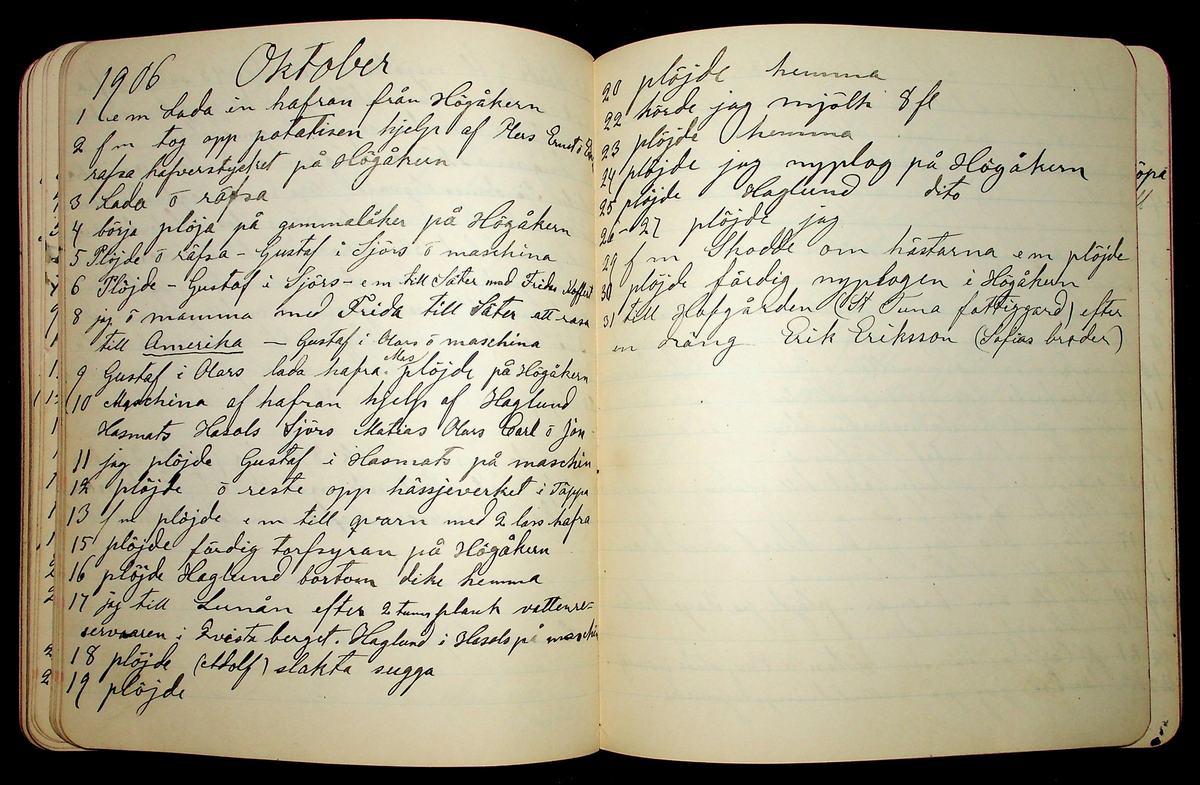 1906 Oktober
1 e m Lada in hafran från Högåkern
2 f m tog opp potatisen hjelp af Pers Ernst o
räfsa hafverstycket på Högåkern
3 Lada ö räfsa
4 börja plöja på gammalåker på Högåkern
5 Plöjde ö räfsa - Gustaf i Sjörs ö maschina
6 Plöjde - Gustaf i Sjörs - e m till Säter med Fridas Koffert
8 jag ö mamma med Frida till Säter att resa
till Amerika - Gustaf i Olars ö maschina
9 Gustaf i Olars lada hafra. Mas plöjde på Högåkern
10 Maschina af hafran hjelp af Haglund
Hasmats Hasols Sjörs Matias Olars Carl ö Jon
11 jag plöjde Gustaf i Hasmats på maschin
12 plöjde ö reste opp hässjeverket i Täppa
13 f m plöjde e m till qvarn med 2 lass hafra
15 plöjde färdig torfsyran på Högåkern
16 plöjde Haglund bortom dike hemma
17 jag till Lunån efter 2 tums plank vattenre-
servaaren i Kvista berget. Haglund i Hasols på maschi
18 plöjde (Adolf) slakta sugga
19 plöjde
20 plöjde hemma
22 körde jag mjölk 8 fl
23 plöjde hemma
24 plöjde jag nyplog på Högåkern
25 plöjde Haglund dito
26 - 27 plöjde jag
29 f m Skodde om hästarna e m plöjde
30 plöjde färdig nyplogen i Högåkern
31 till Hofgården (St Tuna fattiggard) efter
en dräng Erik Eriksson (Sofias broder)